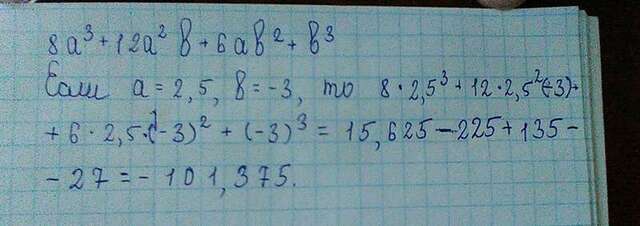 8a³ + 12a² b + 6ab² + b³
Если a = 2,5, b = -3, то 8 · 2,5³ + 12 · 2,5² (-3) +
+ 6 · 2,5 · (-3)² + (-3)³ = 15,625 - 225 + 135 -
- 27 = - 101,375.